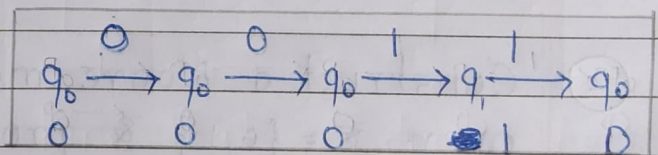 0 0 1 1
q₀ → q₀ → q₀ → q₁ → q₀
0 0 0 1 0